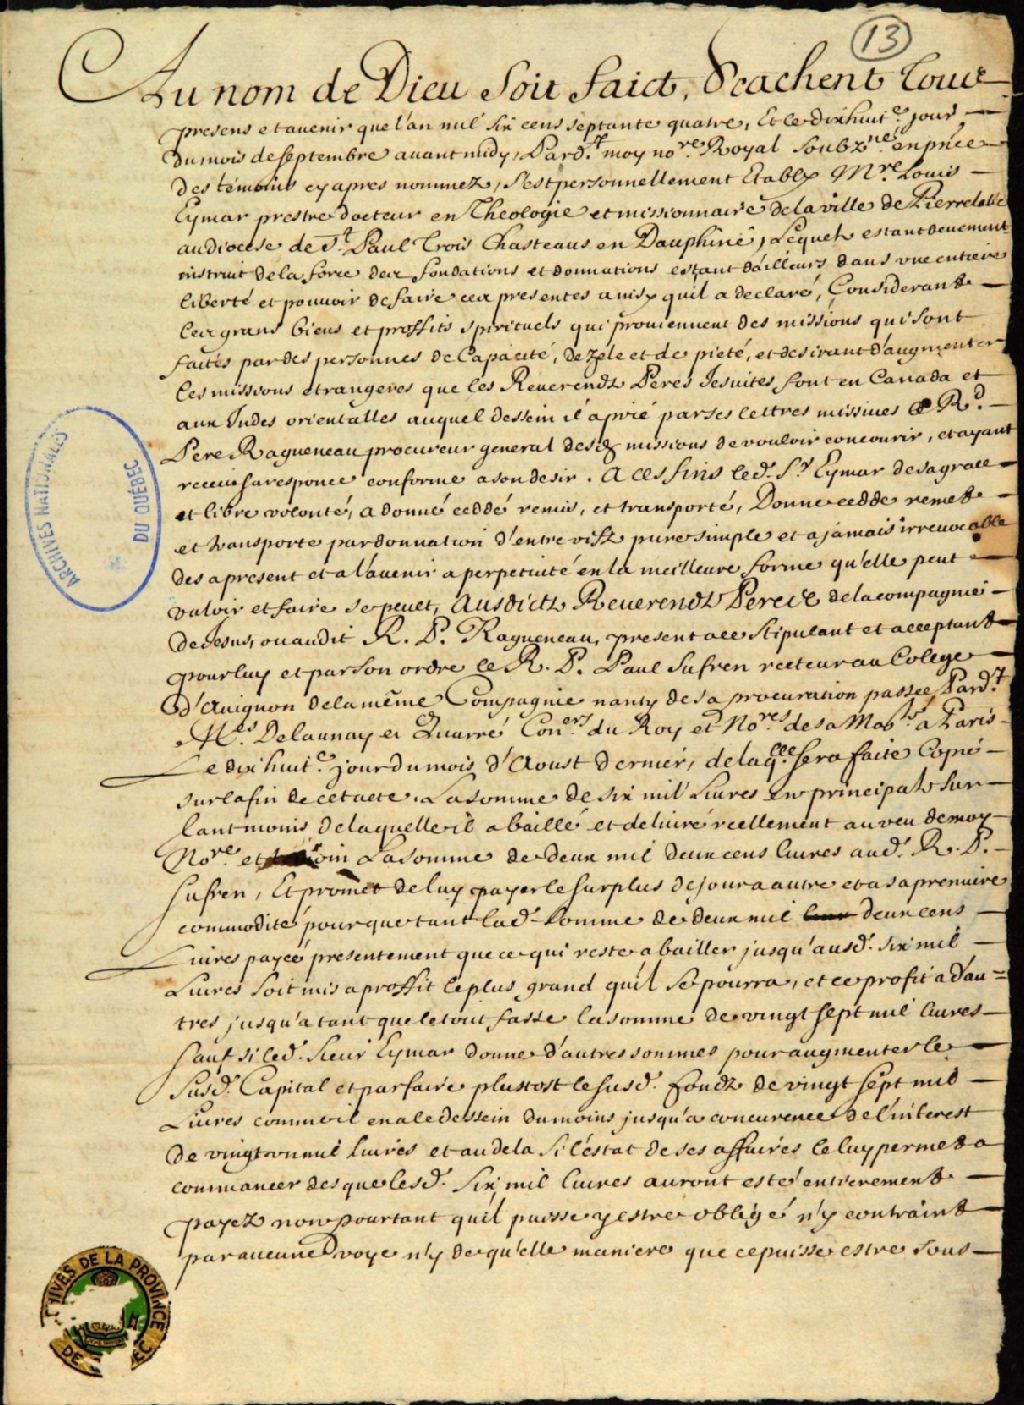 13
Au nom de Dieu soit faict, Scachent tous
presens et avenir que l'an mil six cens septante quatre, Et le dixhuit.e jour
du mois de septembre avant midy, Pard.t moy no.re Royal soubz.né en p̃nce
des témoins cy apres nommez, s'est personnellement Etably M.re Louis
Eymar prestre docteur en Theologie et missionnaire de la ville de Pierrelatte
au diocese de S.t Paul Trois Chasteaus en Dauphiné, Lequel estant deuement
instruit de la force des fondations et donnations estant d'ailleurs dans une entiere
liberté et pouvoir de faire ces presentes ainsy quil a declaré, Considerant
les grans biens et proffits spirituels qui proviennent des missions qui sont
faites par des personnes de Capacité, de zéle et de pieté, et desirant d'augmenter
les missions etrangeres que les Reverendz Peres Jesuites font en Canada et
aux Indes orientalles auquel dessein il a prié par ses lettres missives le R.d
Pere Ragueneau procureur general desd. missions de vouloir concourir, et ayant
receu sa responce conforme a son desir. A ces fins led. S.r Eymar de sa grace
et libre volonté, a donné ceddé remis, et transporté, Donne cedde remet
et transporte par donnation d'entre vifz pure simple et a jamais irrevocable
des apresent et a l'avenir a perpetuité en la meilleure forme qu'elle peut
valoir et faire se peut, Ausdictz Reverendz Peres de la compagnie
de Jesus, ou audit R. P. Ragueneau, present a ce stipulant et acceptant
pour luy et par son ordre le R. P. Paul Sufren recteur au College
d'Avignon de la même Compagnie nanty de sa procuration passée Pard.t
M.es Delaunay et Quarré Con.ers du Roy et No.res de sa Ma.té a Paris
Le dixhuit.e jour du mois d'Aoust dernier, de laq.lle sera faite Copie
sur la fin de cet acte. La somme de six mil Livres en principal sur
lant moins de laquelle il a baillé et delivré reellement au veu de moy
No.re et temoin La somme de deux mil deux cens livres aud. R. P.
Sufren, Et promet de luy payer le surplus de jour a autre et a sa premiere
commodité pour que tant lad. somme de deux mil deux cens
Livres payée presentement que ce qui reste a bailler jusqu'ausd. six mil
Livres soit mis a proffit le plus grand quil se pourra, et ce profit a d'au=
tres jusqu'a tant que le tout fasse la somme de vingt sept mil livres
sauf si led. Sieur Eymar donne d'autres sommes pour augmenter le
susd. Capital et parfaire plustost le susd. fondz de vingt sept mil
Livres comme il en a le dessein du moins jusqu'a concurence de l'interest
de vingt un mil livres et au dela si l'éstat de ses affaires le luy permet a
commancer des que lesd. six mil livres auront esté entierement
payez non pourtant quil puisse y estre obligé n'y contraint
par aucune voye n'y de qu'elle maniere que ce puisse estre sous
ARCHIVES NATIONALES
DU QUÉBEC
ARCHIVES DE LA PROVINCE
DE QUÉBEC